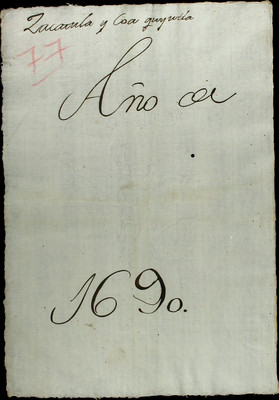 Zacatula y Coa guyuria
77
Año de
1690.